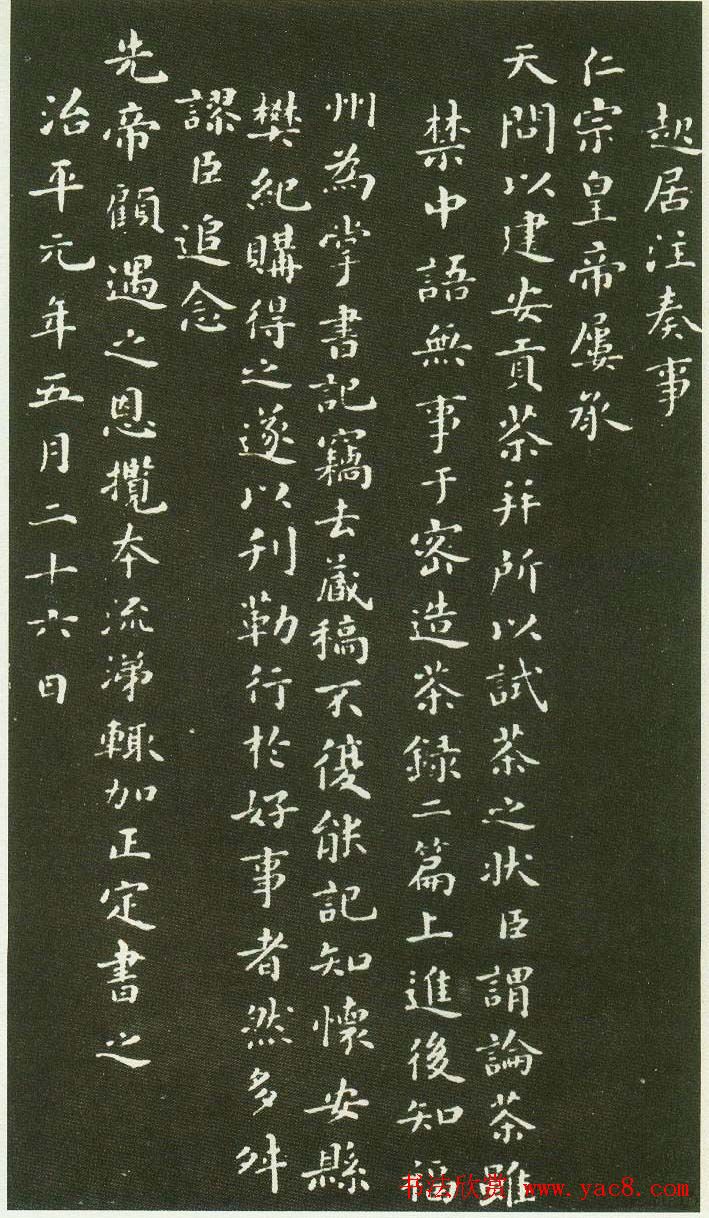 起居注奏事
仁宗皇帝屢承
天問以建安貢茶并所以試茶之狀臣謂論茶雖
禁中語無事于密造茶錄二篇上進後知福
州為掌書記竊去藏稿不復能記知懷安縣
樊紀購得之遂以刊勒行於好事者然多舛
謬臣追念
先帝顧遇之恩攬本流涕輒加正定書之
治平元年五月二十六日
书法欣赏 www.yac8.com